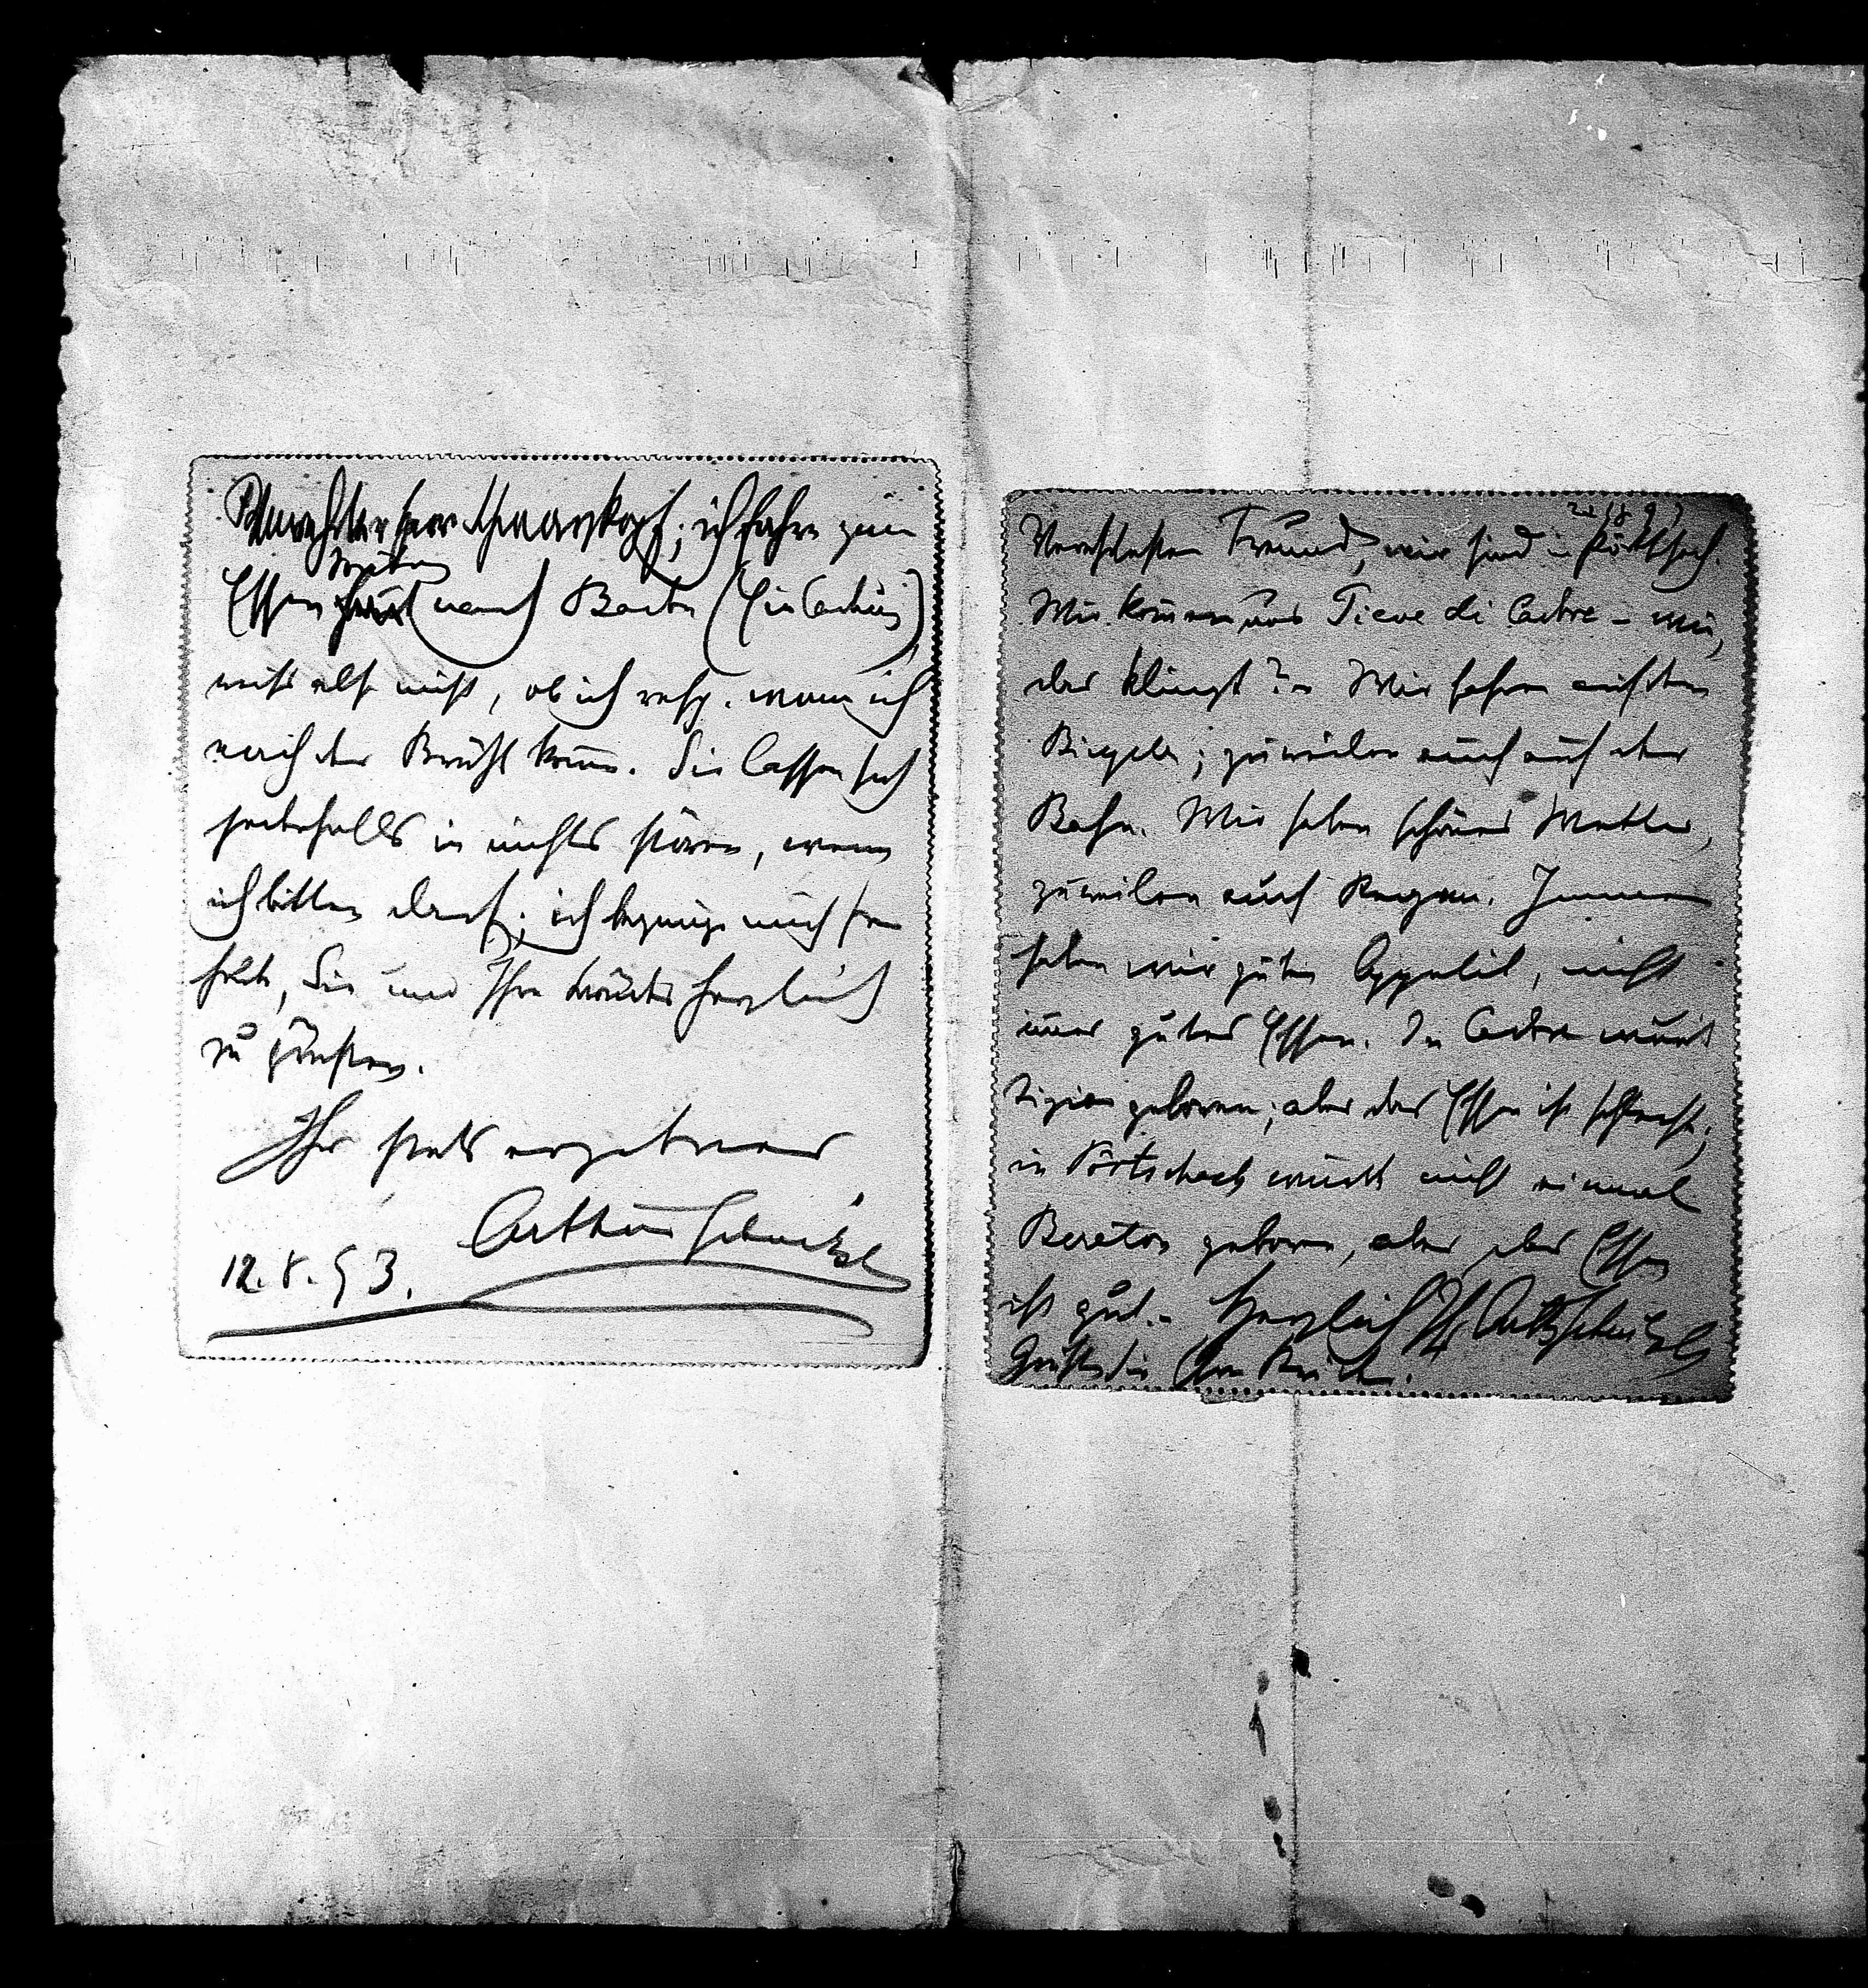 Verehrter Herr Schwarzkopf; ich fahre zum
Essen nach Baden (Einladung)
weiß also nicht, ob ich resp. wann ich
nach der Brühl komme. Sie lassen sich
jedenfalls in nichts stören, wenn
ich bitten darf; ich begnüge mich für
heute, Sie und Ihre Mutter herzlich
zu grüßen.
Ihr stets ergebener
Arthur Schnitzler
12. 8. 93.
Verehrtester Freund, wir sind in Pörtschach.
Wir kommen von Pieve di Cadore – wie,
das klingt? – Wir fahren auf den
Bicycles; zuweilen auch auf der
Bahn. Wir haben schönes Wetter,
zuweilen auch Regen. Immer
haben wir guten Appetit, nicht
immer gutes Essen. In Cadore wurde
Tizian geboren; aber das Essen ist schlecht;
in Pörtschach wurde nicht einmal
geboren, aber das Essen
ist gut. – Herzlich Ihr ArthSchnitzler
Grüßen Sie